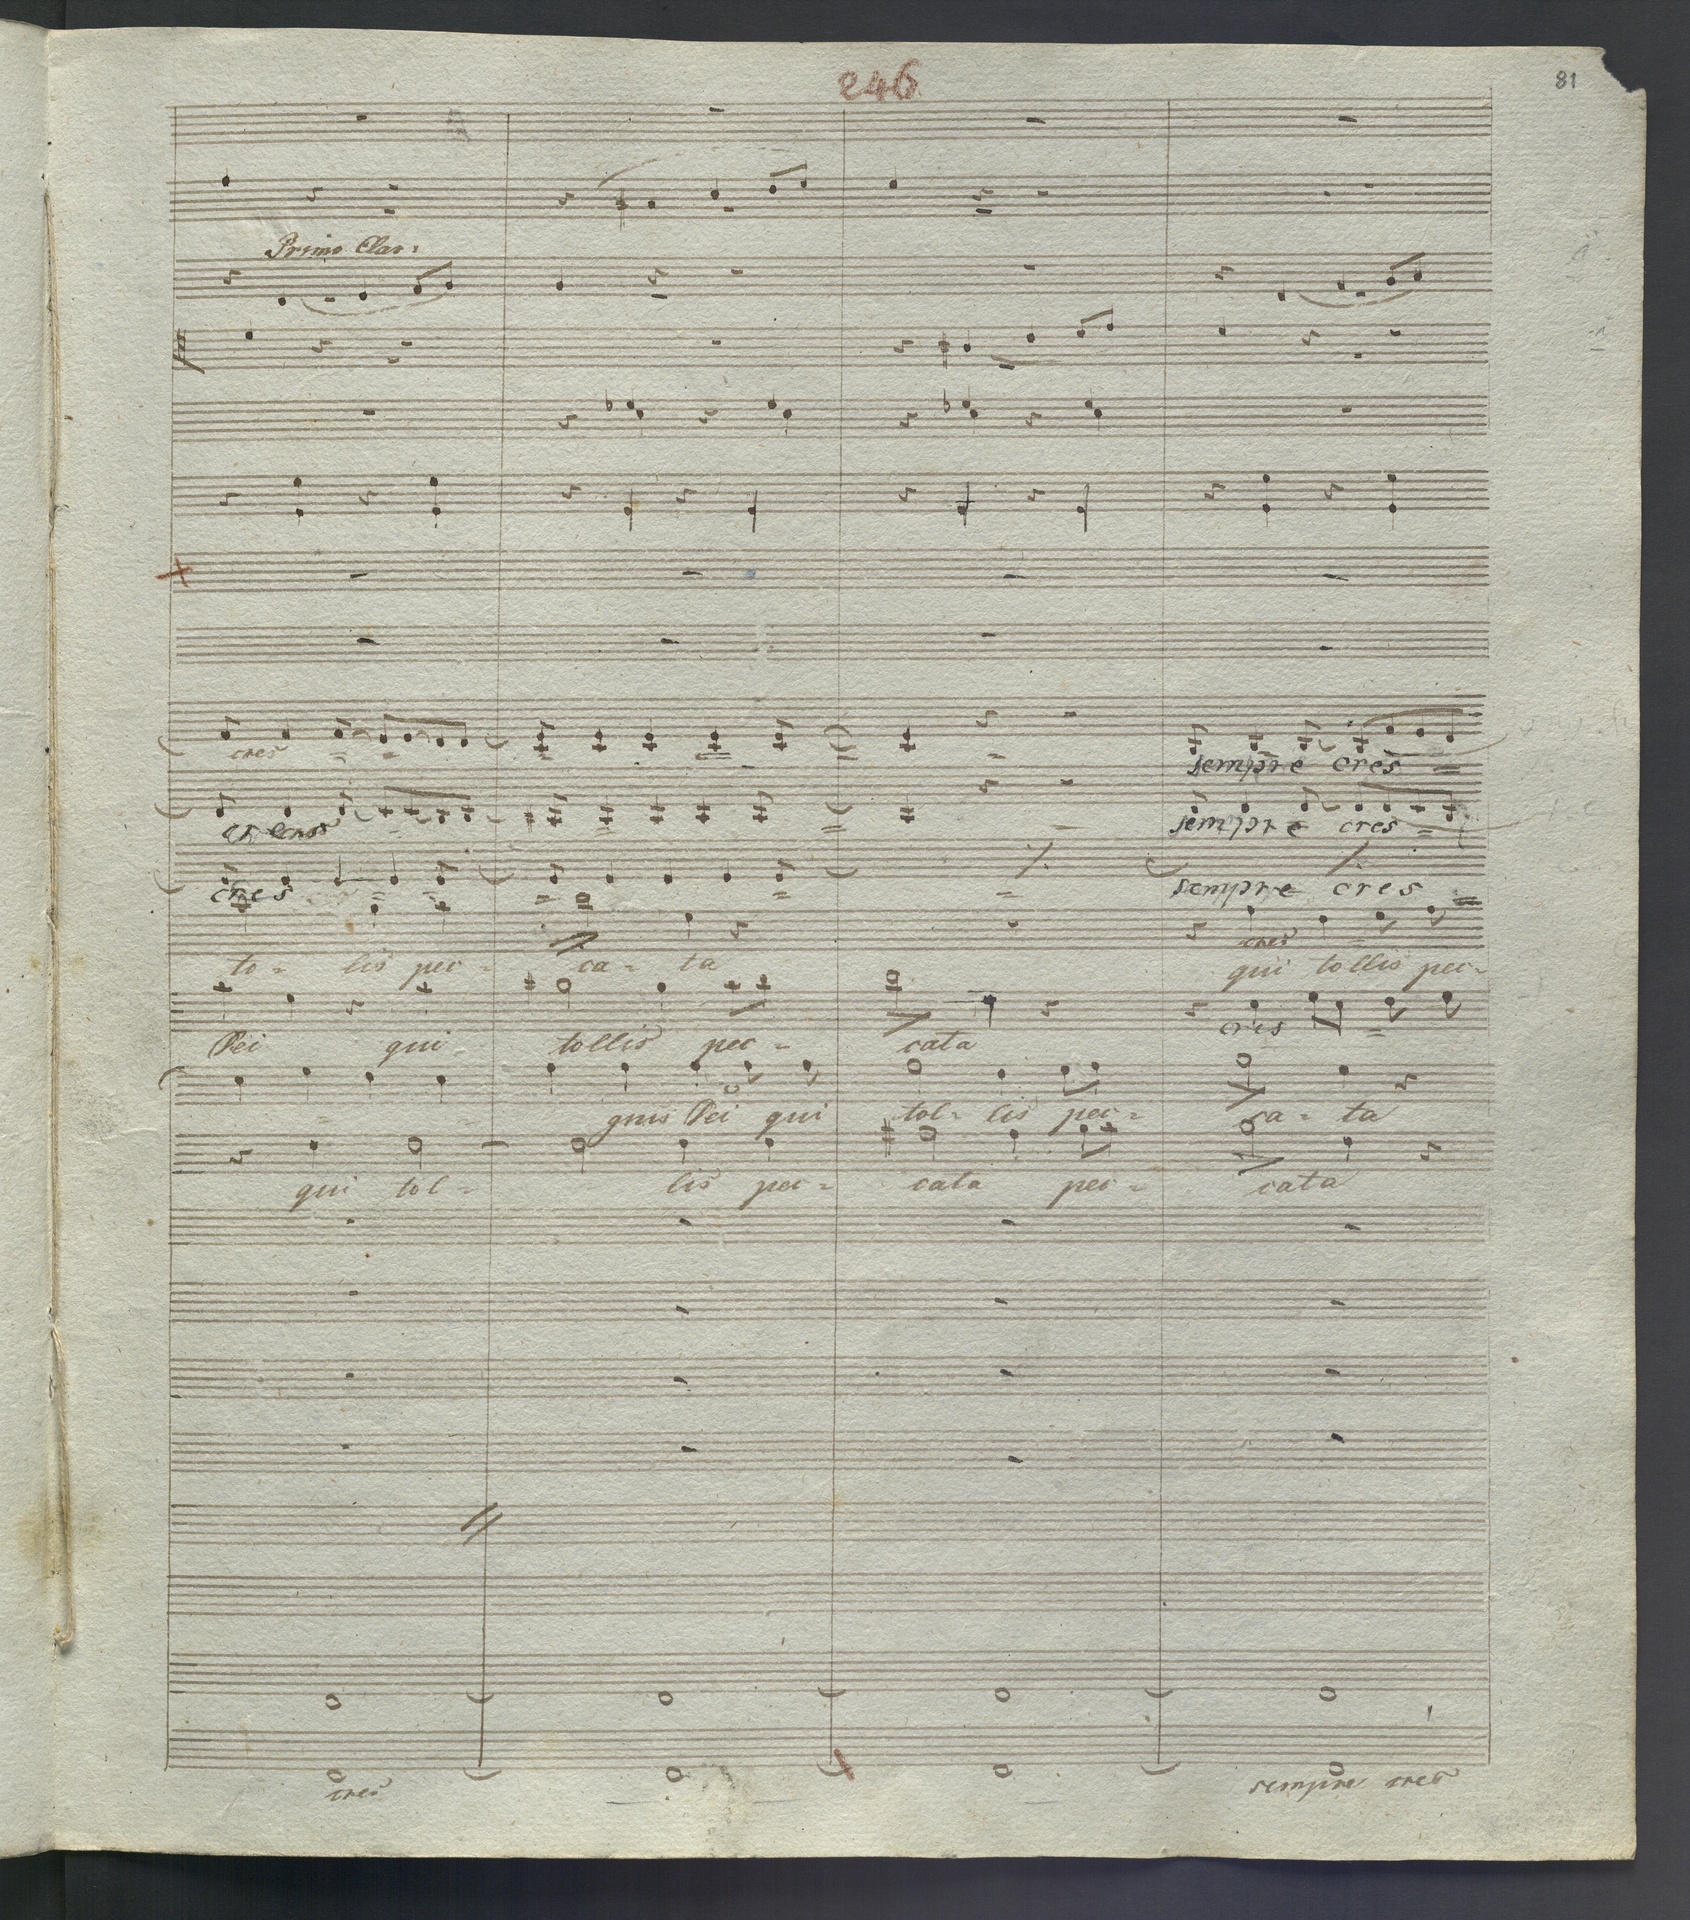 246
81
Primo Clar:
cres
sempre cres
sempre cres
cres
sempre cres
cres
to - lis pec - ca - ta qui tollis pec-
cres
Dei qui tollis pec - cata
gnus Dei qui tol - lis pec - ca - ta
qui tol - lis pec - cata pec - cata
cres
sempre cres